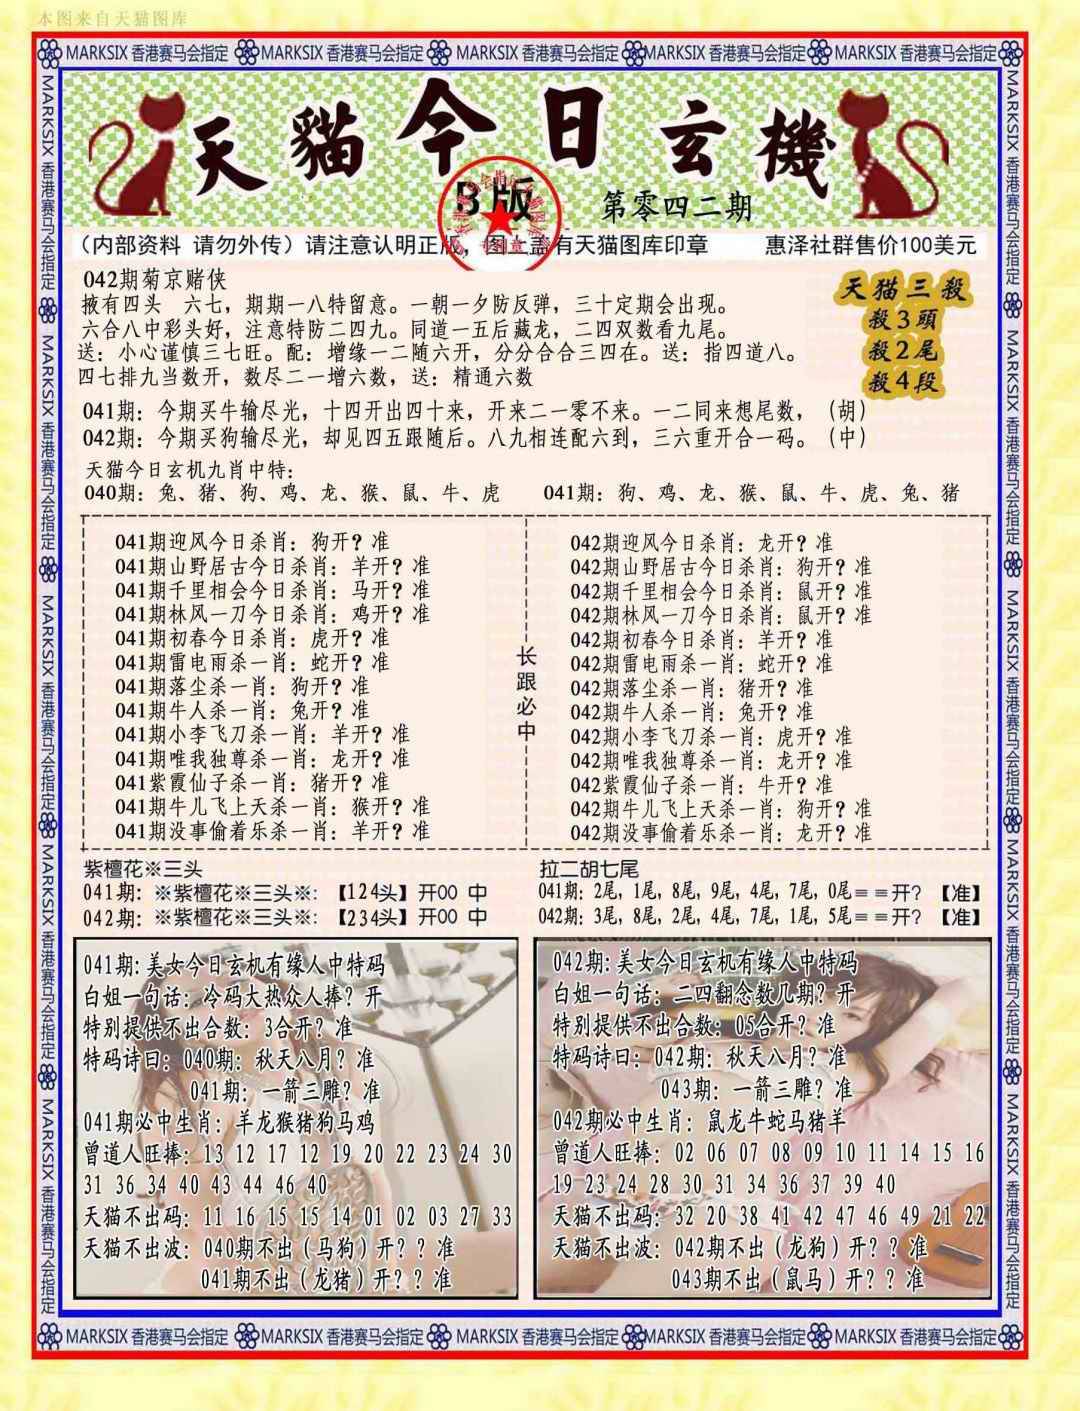 本图来自天猫图库
MARKSIX 香港赛马会指定 MARKSIX 香港赛马会指定 MARKSIX 香港赛马会指定 MARKSIX 香港赛马会指定 MARKSIX 香港赛马会指定
天貓今日玄機
B版
第零四二期
(内部资料 请勿外传) 请注意认明正版, 图上盖有天猫图库印章 惠泽社群售价100美元
042期菊京赌侠
掖有四头 六七, 期期一八特留意。一朝一夕防反弹, 三十定期会出现。
六合八中彩头好, 注意特防二四九。同道一五后藏龙, 二四双数看九尾。
送: 小心谨慎三七旺。配: 增缘一二随六开, 分分合合三四在。送: 指四道八。
四七排九当数开, 数尽二一增六数, 送: 精通六数
天猫三殺
殺3頭
殺2尾
殺4段
041期: 今期买牛输尽光, 十四开出四十来, 开来二一零不来。一二同来想尾数, (胡)
042期: 今期买狗输尽光, 却见四五跟随后。八九相连配六到, 三六重开合一码。(中)
天猫今日玄机九肖中特:
040期: 兔、猪、狗、鸡、龙、猴、鼠、牛、虎 041期: 狗、鸡、龙、猴、鼠、牛、虎、兔、猪
041期迎风今日杀肖: 狗开? 准
041期山野居古今日杀肖: 羊开? 准
041期千里相会今日杀肖: 马开? 准
041期林风一刀今日杀肖: 鸡开? 准
041期初春今日杀肖: 虎开? 准
041期雷电雨杀一肖: 蛇开? 准
041期落尘杀一肖: 狗开? 准
041期牛人杀一肖: 兔开? 准
041期小李飞刀杀一肖: 羊开? 准
041期唯我独尊杀一肖: 龙开? 准
041紫霞仙子杀一肖: 猪开? 准
041期牛儿飞上天杀一肖: 猴开? 准
041期没事偷着乐杀一肖: 羊开? 准
长跟必中
042期迎风今日杀肖: 龙开? 准
042期山野居古今日杀肖: 狗开? 准
042期千里相会今日杀肖: 鼠开? 准
042期林风一刀今日杀肖: 鼠开? 准
042期初春今日杀肖: 羊开? 准
042期雷电雨杀一肖: 蛇开? 准
042期落尘杀一肖: 猪开? 准
042期牛人杀一肖: 兔开? 准
042期小李飞刀杀一肖: 虎开? 准
042期唯我独尊杀一肖: 龙开? 准
042紫霞仙子杀一肖: 牛开? 准
042期牛儿飞上天杀一肖: 狗开? 准
042期没事偷着乐杀一肖: 龙开? 准
紫檀花※三头
041期: ※紫檀花※三头※: 【124头】开00 中
042期: ※紫檀花※三头※: 【234头】开00 中
拉二胡七尾
041期: 2尾, 1尾, 8尾, 9尾, 4尾, 7尾, 0尾==开? 【准】
042期: 3尾, 8尾, 2尾, 4尾, 7尾, 1尾, 5尾==开? 【准】
041期:美女今日玄机有缘人中特码
白姐一句话: 冷码大热众人捧? 开
特别提供不出合数: 3合开? 准
特码诗曰: 040期: 秋天八月? 准
041期: 一箭三雕? 准
041期必中生肖: 羊龙猴猪狗马鸡
曾道人旺捧: 13 12 17 12 19 20 22 23 24 30
31 36 34 40 43 44 46 40
天猫不出码: 11 16 15 15 14 01 02 03 27 33
天猫不出波: 040期不出 (马狗) 开? ? 准
041期不出 (龙猪) 开? ? 准
042期:美女今日玄机有缘人中特码
白姐一句话: 二四翻念数几期? 开
特别提供不出合数: 05合开? 准
特码诗曰: 042期: 秋天八月? 准
043期: 一箭三雕? 准
042期必中生肖: 鼠龙牛蛇马猪羊
曾道人旺捧: 02 06 07 08 09 10 11 14 15 16
19 23 24 28 30 31 34 36 37 39 40
天猫不出码: 32 20 38 41 42 47 46 49 21 22
天猫不出波: 042期不出 (龙狗) 开? ? 准
043期不出 (鼠马) 开? ? 准
MARKSIX 香港赛马会指定 MARKSIX 香港赛马会指定 MARKSIX 香港赛马会指定 MARKSIX 香港赛马会指定 MARKSIX 香港赛马会指定
MARKSIX 香港赛马会指定 MARKSIX 香港赛马会指定 MARKSIX 香港赛马会指定 MARKSIX 香港赛马会指定 MARKSIX 香港赛马会指定
MARKSIX 香港赛马会指定 MARKSIX 香港赛马会指定 MARKSIX 香港赛马会指定 MARKSIX 香港赛马会指定 MARKSIX 香港赛马会指定